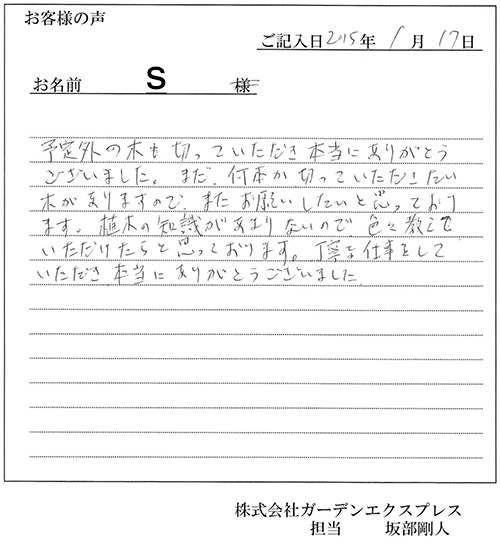 お客様の声
ご記入日2015年 1月 17日
お名前 S 様
予定外の木も切っていただき本当にありがとう
ございました。まだ、何本か切っていただきたい
木がありますので、またお願いしたいと思っており
ます。植木の知識があまりないので色々教えて
いただけたらと思っております。丁寧な仕事をして
いただき本当にありがとうございました。
株式会社ガーデンエクスプレス
担当 坂部剛人